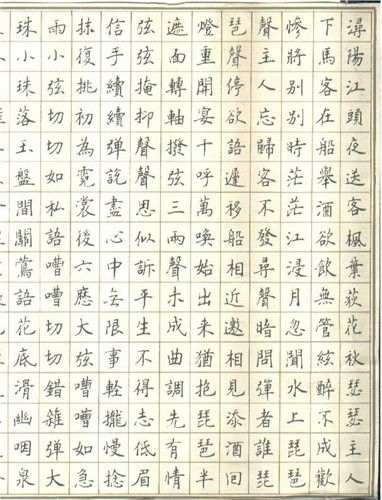 潯陽江頭夜送客楓葉荻花秋瑟瑟主人
下馬客在船舉酒欲飲無管絃醉不成歡
慘將別別時茫茫江浸月忽聞水上琵琶
聲主人忘歸客不發尋聲暗問彈者誰琵
琶聲停欲語遲移船相近邀相見添酒回
燈重開宴千呼萬喚始出来猶抱琵琶半
遮面轉軸撥弦三兩聲未成曲調先有情
弦弦掩抑聲聲思似訴平生不得志低眉
信手續續彈說盡心中无限事輕攏慢捻
抹復挑初為霓裳後六麼大弦嘈嘈如急
雨小弦切切如私語嘈嘈切切錯雜彈大
珠小珠落玉盤間關鶯語花底滑幽咽泉